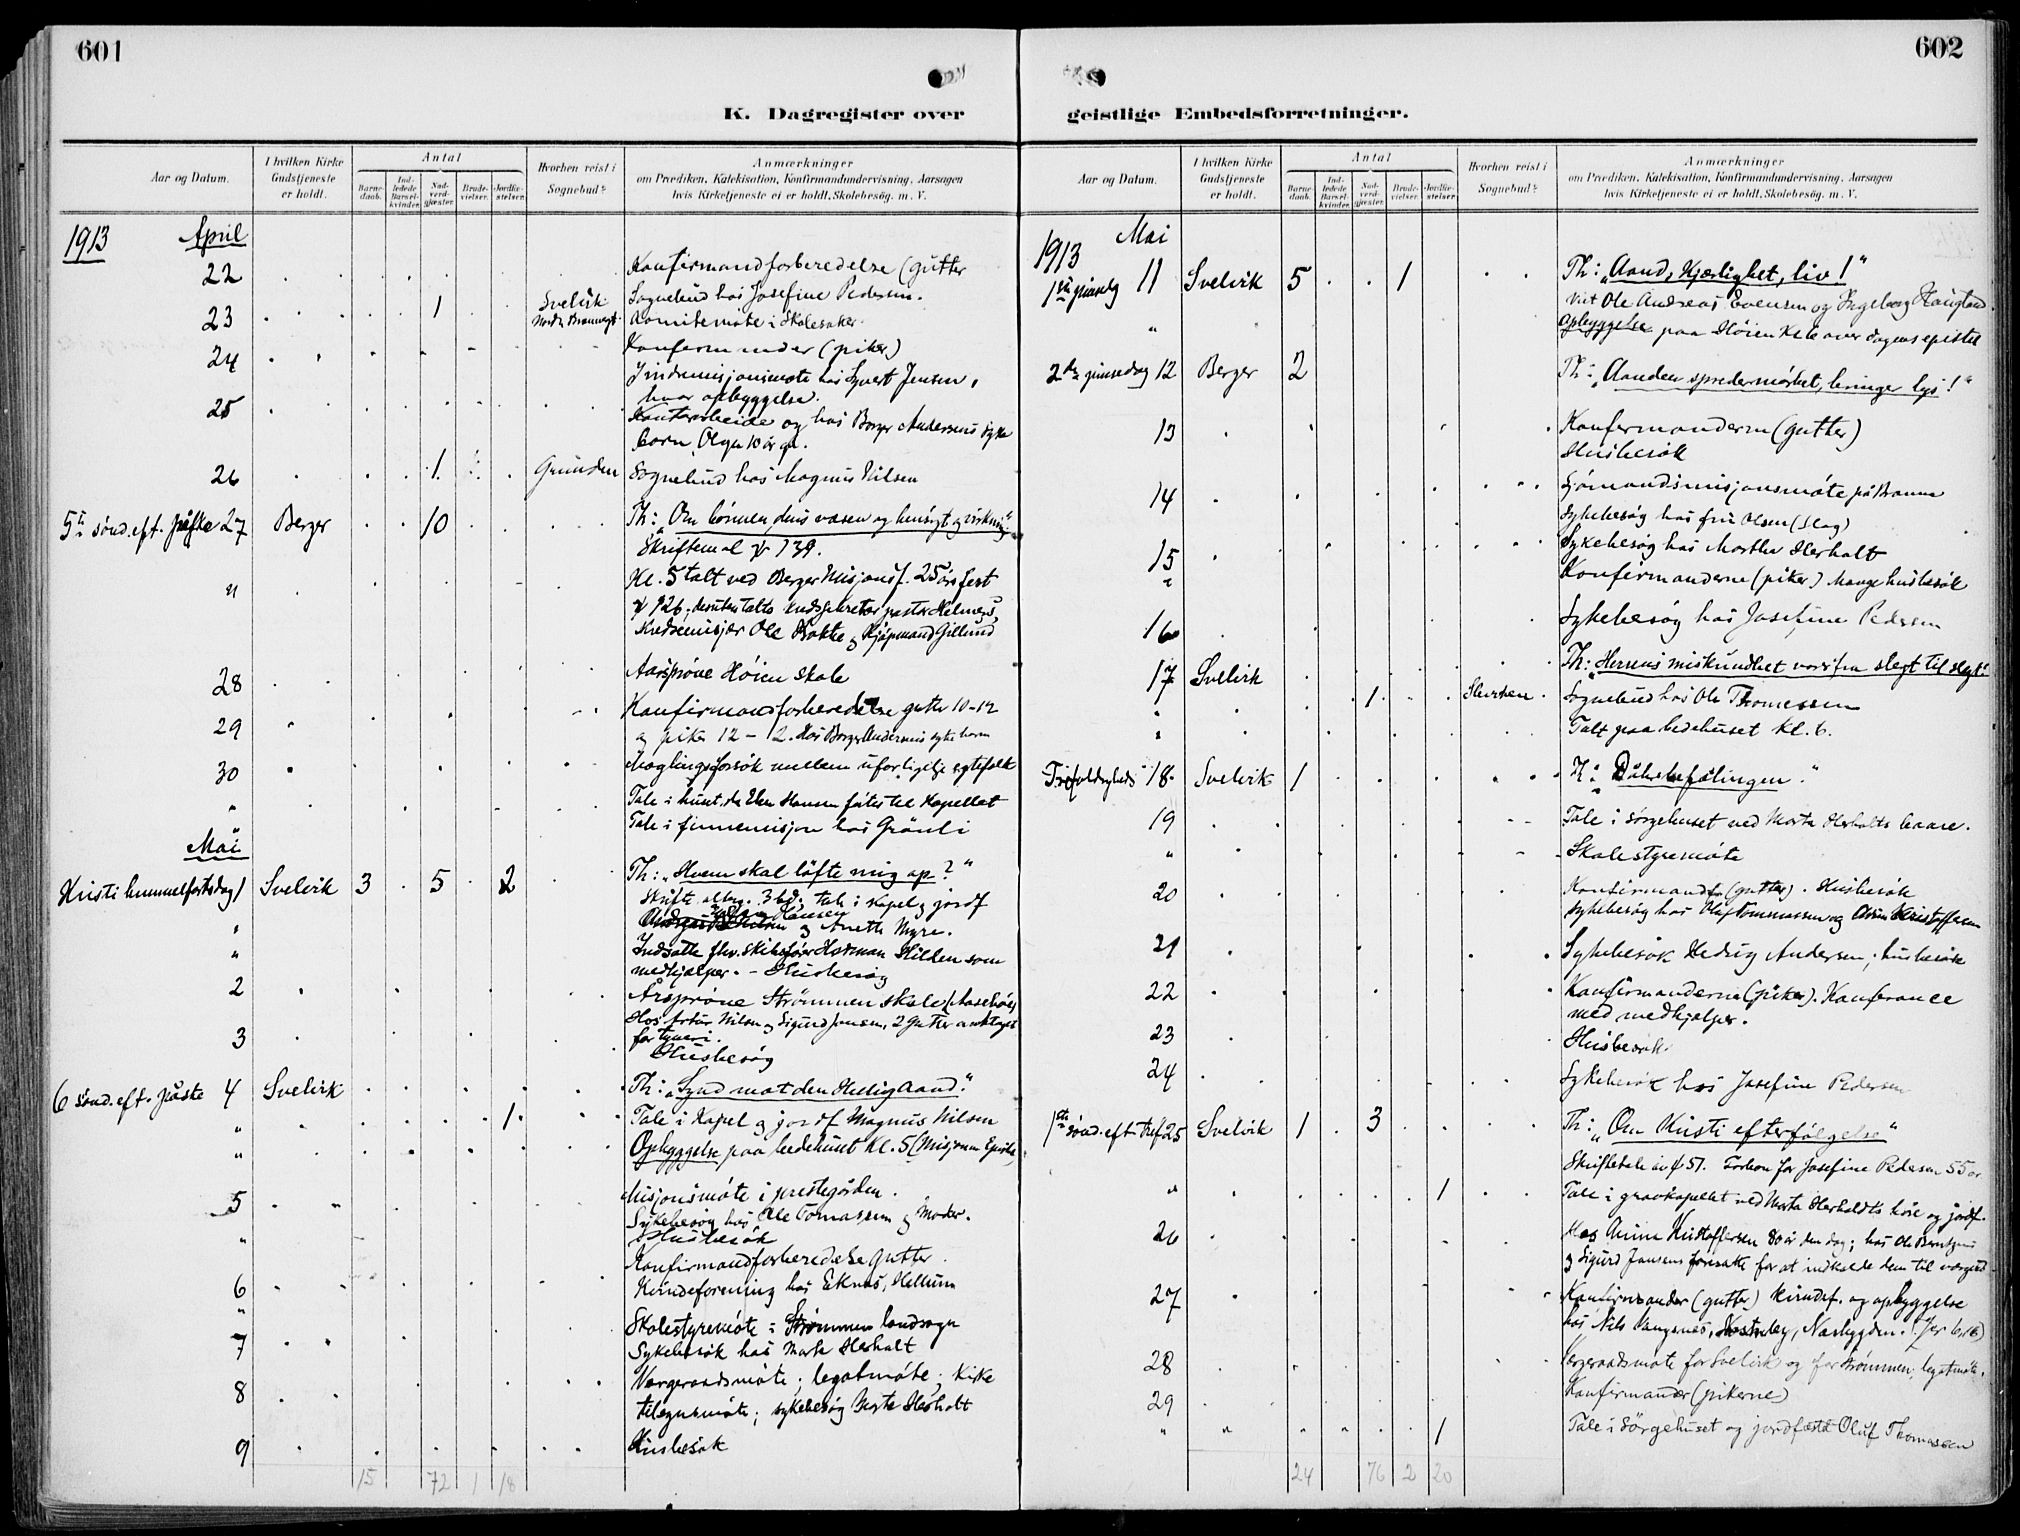 601
K. Dagregister over
Aar og Datum.
I hvilken Kirke Gudstjeneste er holdt.
Antal
Barnedaab.
Indledede Barselkvinder.
Nadverdgjæster.
Brudevielser.
Jordfæstelser.
Hvorhen reist i Sognebud?
Anmærkninger
om Prædiken, Katekisation, Konfirmandundervisning, Aarsagen
hvis Kirketjeneste ei er holdt, Skolebesøg. m. V.
1913 April
22 Konfirmandforberedelse (gutter
23 1 Svelvik Sognebud hos Josefine Pedersen.
Komitemøte i Skolesaker.
24 Konfirmander (piker)
Indremisjonsmøte hos Syvert Jensen,
hvor opbyggelse.
25 Kontorarbeide og hos Borger Andersens syke
barn, Olga 10 år gl.
26 1 Grunden Sognebud hos Magnus Nilsen
5te sønd. eft. påske 27 Berger 10 Th: „Om bønnen, dens væsen og hensigt og virkning“
Skriftemal ψ 139.
" Kl. 5 talt ved Berger Misjonsf. 25 års fest
ψ 126. desuten talte kredssekretær pastor
Kredsemisjær Ole og Kjøpmand
28 Aarsprøve Høien skole
29 Konfirmandforberedelse gutter 10-12
og piker 12 - 2. Hos Borger Andersens syke barn
30 Mæglingsforsøk mellem uforligelige egtefolk
" Tale i huset, da Hansen førtes til Kapellet
Tale i finnemisjon hos Grønli
Mai
Kristi himmelfartsdag 1 Svelvik 3 5 2 Th: „Hvem skal løfte mig op?“
tale i kapel og jordf
Hansen og Anette Myre.
" Indsatte fhv. skibsfører Herman Hilden som
medhjælper. - Husbesøg
2 Årsprøve Strømmen skole
3 Hos Artur Nilsen og Sigurd Jensen, 2 gutter
for tyveri.
Husbesøg
6 sønd. eft. påske 4 Svelvik Th: „Synd mot den Hellig Aand.“
" 1 Tale i Kapel og jordf Magnus Nilsen
" Opbyggelse paa bedehuset Kl. 5
5 Misjonsmøte i prestegården.
Sykebesøg hos Ole Tomassen og Moder.
" Husbesøk
Konfirmandforberedelse gutter
6 Kvindeforening hos Eknes, Hellum
" Skolestyremøte i Strømmen landsogn
7 Sykebesøk hos Marta Herholt
8 Vergeraadsmøte; legatmøte; kirke
tilsynsmøte; sykebesøg Marta Herholt
9 Husbesøk
15 72 1 18
602
geistlige Embedsforretninger.
Aar og Datum.
I hvilken Kirke Gudstjeneste er holdt.
Antal
Barnedaab.
Indledede Barselkvinder.
Nadverdgjæster.
Brudevielser.
Jordfæstelser.
Hvorhen reist i Sognebud?
Anmærkninger
om Prædiken, Katekisation, Konfirmandundervisning, Aarsagen
hvis Kirketjeneste ei er holdt, Skolebesøg. m. V.
1913 Mai
1ste pinsedg 11 Svelvik 5 1 Th: „Aand, Kjærlighet, liv!“
Viet Ole Andreas Evensen og Ingeborg Haugland
" Opbyggelse paa Høien Kl. 6 over dagens epistel
2den pinsedag 12 Berger 2 Th: „Aanden spreder mørket, bringer lys!“
13 Konfirmanderne (gutter)
Husbesøk
14 Sjømandsmisjonsmøte på
Sykebesøg hos fru Olsen
15 Sykebesøg hos Martha Herholt
" Konfirmanderne (piker) Mange husbesøk
16 Sykebesøg hos Josefine Pedersen
17 Svelvik Th: „Herrens miskundhet varer fra slegt til slegt.“
" 1 Sognebud hos Ole Thomessen
" Talt paa bedehuset kl. 6.
Trefoldigheds 18. Svelvik 1 Th: „Dåbsbefalingen.“
19 Tale i sørgehuset ved Marta Herholts baare.
" Skolestyremøte
20 Konfirmander (gutter). Husbesøk
Sykebesøg hos Oluf Tommassen og Kristoffersen
21 Sykebesøk Hedvig Andersen; husbesøk
22 Konfirmanderne (piker). Konferance
med medhjelper.
23 Husbesøk.
24 Sykebesøk hos Josefine Pedersen
1ste sønd. eft. Tref 25 Svelvik 1 3 Th: „Om Kristi efterfølgelse“
Skriftetale av ψ 51. Forbøn for Josefine Pedersen 55 år
" 1 Tale i gravkapellet ved Marta Herholdts båre og jordf.
26 Hos Kristoffersen 80 år den dag; hos Ole
og Sigurd Jensens foresatte for at indkalde dem til vergeråd
27 Konfirmander (gutter) kvindef. og opbyggelse
hos Nils Nesbygden.
28 Vergeraadsmøte for Svelvik og for Strømmen; legatmøte.
29 Konfirmander (pikerne)
" 1 Tale i Sørgehuset og jordfæstet Oluf Thomassen
24 76 2 20